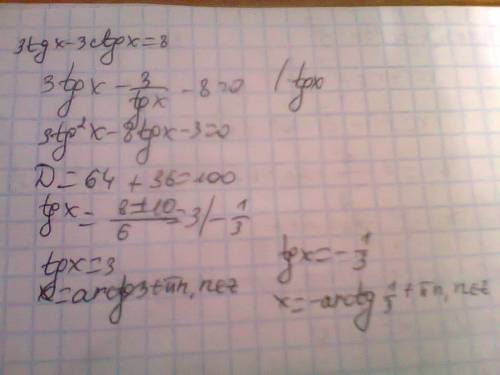 3tgx-3ctgx=8
3tgx - 3/tgx - 8=0 /tgx
3tg²x-8tgx-3=0
D=64+36=100
tgx = 8±10/6 = 3/-1/3
tgx=3
x=arctg3+πn, n∈z
tgx=-1/3
x=-arctg 1/3+πn, n∈z